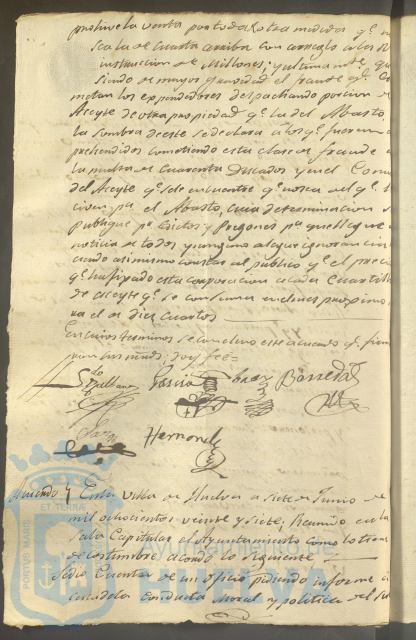 la venta por toda otra medida qe no
sea la de Cuarta arriba con arreglo a la
instruccion de Millones; y ultimamte que
siendo de mayor gravedad el fraude qe co
metan los expendedores despachando porcion de
Aceyte de otra propiedad qe la del Abasto,
la sombra de este se declara a los qe fueren a
prehendidos cometiendo esta clase de fraude
la multa de Cuarenta Ducados y en el Comiso
del Aceyte qe se le encuentre qe no sea del qe
pa el Abasto, cuia determinacion se
publique pr Edictos y Pregones pa qe llegue a
noticia de todos y ninguno alegue ignorancia
asimismo constar al publico qe el precio
qe ha fixado esta corporacion a cada Cuartillo
de aceyte qe se consuma en el mes proximo
es el de diez cuartos
En cuios terminos se concluyo este acuerdo qe firma
doy fee
Garcia Saez Barreda
Hernandez
Acuerdo En la Villa de Huelva a siete de Junio de
mil ochocientos veinte y siete, Reunido en la
Sala Capitular el Ayuntamiento como lo tiene
de costumbre acordo lo siguiente
Se dio Cuenta de un oficio pidiendo informe de
la conducta Moral y politica del
PORTUS MARIS ET TERRAE
Ayuntamiento de
HUELVA